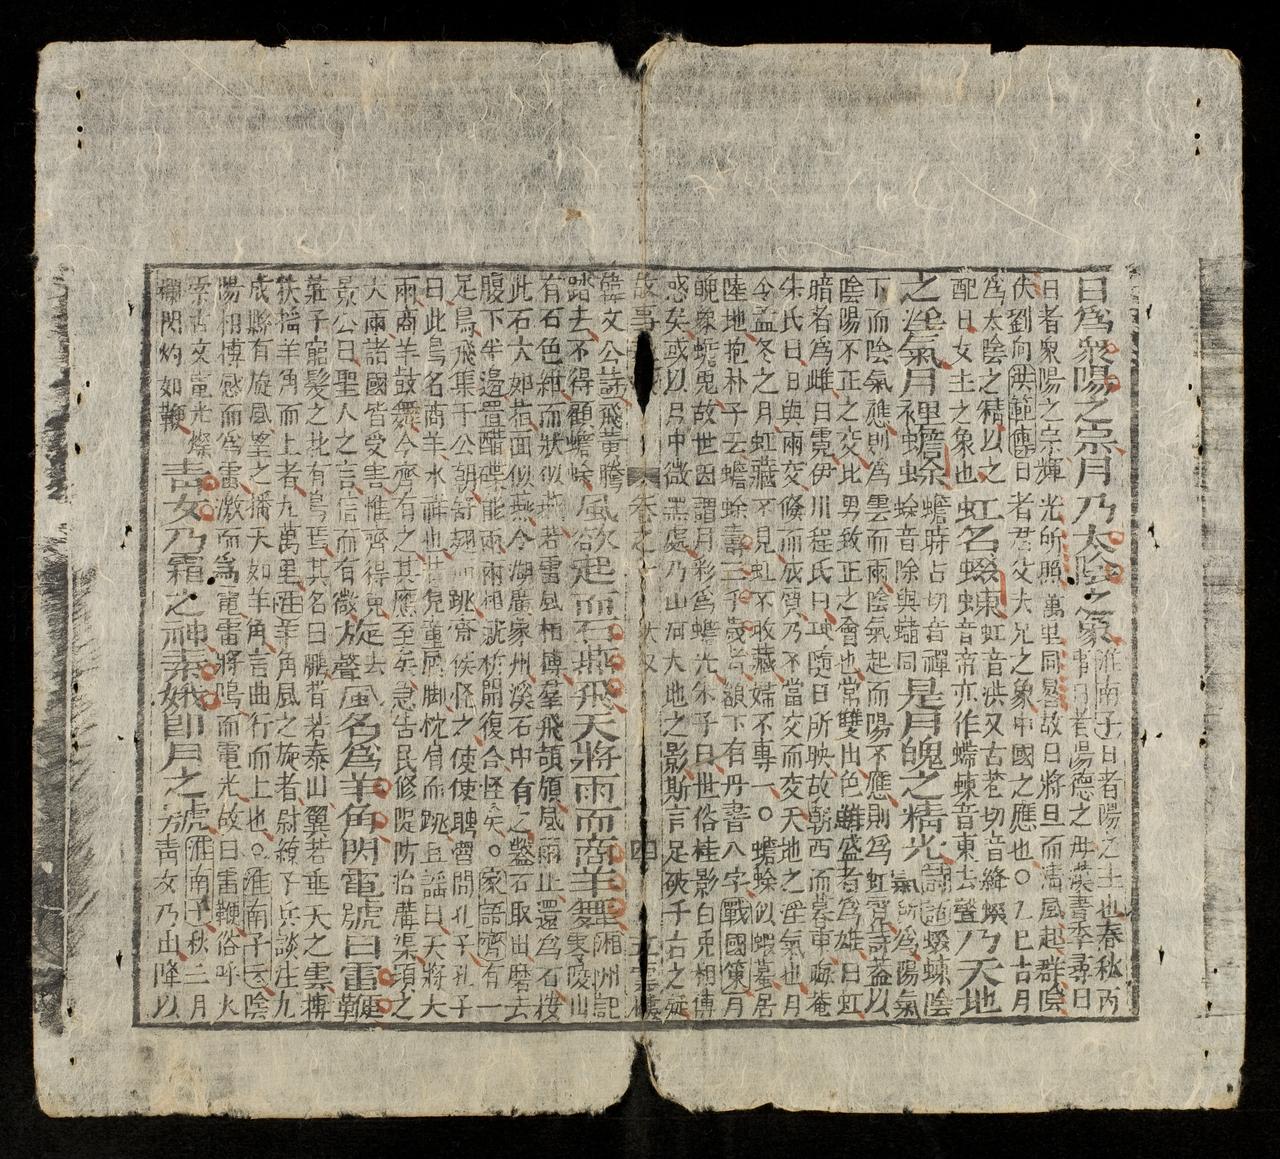 日爲衆陽之宗月乃太陰之象 淮南子曰者陽之主也春秋丙
日者衆陽之宗輝光所照萬里同晷故曰將旦而清風起群陰
伏劉向洪範傳曰者君父夫兄之象中國之應也○乙巳吉月
爲太陰之精以之
配日女主之象也 虹名螮蝀 虹音洪又古巷切音絳螮
蝀音帝亦作蝃蝀音東去聲 乃天地
之淫氣月裡蟾蜍 蟾時占切音禪
蜍音除與蠩同 是月魄之精光 詩詁螮蝀陰
氣所爲陽氣
下而陰氣應則爲雲而雨陰氣起而陽不應則爲虹霓詩葢以
陰陽不正之交比男致正之會也常雙出色鮮盛者爲雄曰虹
暗者爲雌曰霓伊川程氏曰 隨日所映故朝西而暮東晦菴
朱氏曰日與雨交倏而成質乃不當交而交天地之淫氣也月
令孟冬之月虹藏不見虹不收藏婦不專一○蟾蜍似蝦蟇居
陸地抱朴子云蟾蜍壽三千歲者頷下有丹書八字戰國策月
魄象蟾兎故世因謂月彩爲蟾光朱子曰世俗桂影白兎相傳
惑矣或以月中微黑處乃山河大地之影斯言足破千古之疑
故事 卷之一 四
韓文公詩飛黃騰
踏去不得顧蟾蜍 風欲起而石燕飛天將雨而商羊舞 湘州記
零陵山
有石色紺而狀似燕若雷風相薄羣飛頡頏風雨止還爲石按
此石大如指面似燕今湖廣 州 石中有之鑿石取出磨去
腹下半邊置醋碟能 開復合怪矣○家語齊有一
足鳥飛集于公朝舒翅而跳齊侯怪之使使聘魯問孔子孔子
曰此鳥名商羊水祥也昔兒童屈脚 肩而跳且謡曰天將大
雨商羊鼓舞今齊有之其應至矣急告民修隄防治溝渠頃之
大雨諸國皆受害惟齊得免
景公曰聖人之言信而有徵 旋聲去風名爲羊角閃電號曰雷鞭
莊子窮髮之北有鳥焉其名曰鵬背若泰山翼若垂天之雲摶
扶搖羊角而上者九萬里註羊角風之旋者尉繚子兵談注九
成縣有旋風望之播天如羊角言曲行而上也○淮南子云陰
陽相摶感而爲雷激而爲電雷將鳴而電光故曰雷鞭俗呼火
索古文電光燦
爛閃灼如鞭 青女乃霜之神素娥卽月之號 淮南子秋三月
青女乃出降以